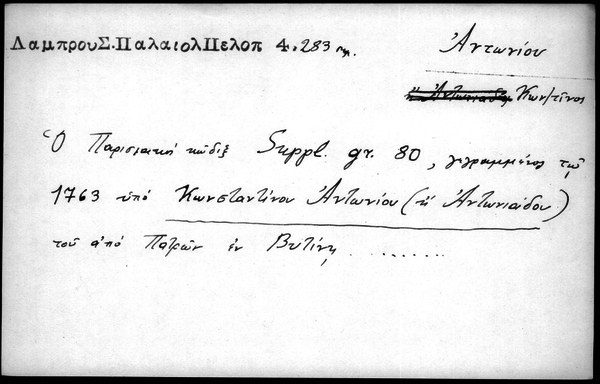 ΛαμπρουΣ.ΠαλαιολΠελοπ 4.283
Ἀντωνίου
ἢ Ἀντωνιάδης Κων/τῖνος
Ὁ Παρισιακὸς κῶδιξ Suppl. gr. 80, γεγραμμένος τῷ
1763 ὑπό Κωνσταντίνου Ἀντωνίου (ἢ Ἀντωνιάδου)
τοῦ ἀπό Πατρῶν ἐν Βυτίνῃ ........